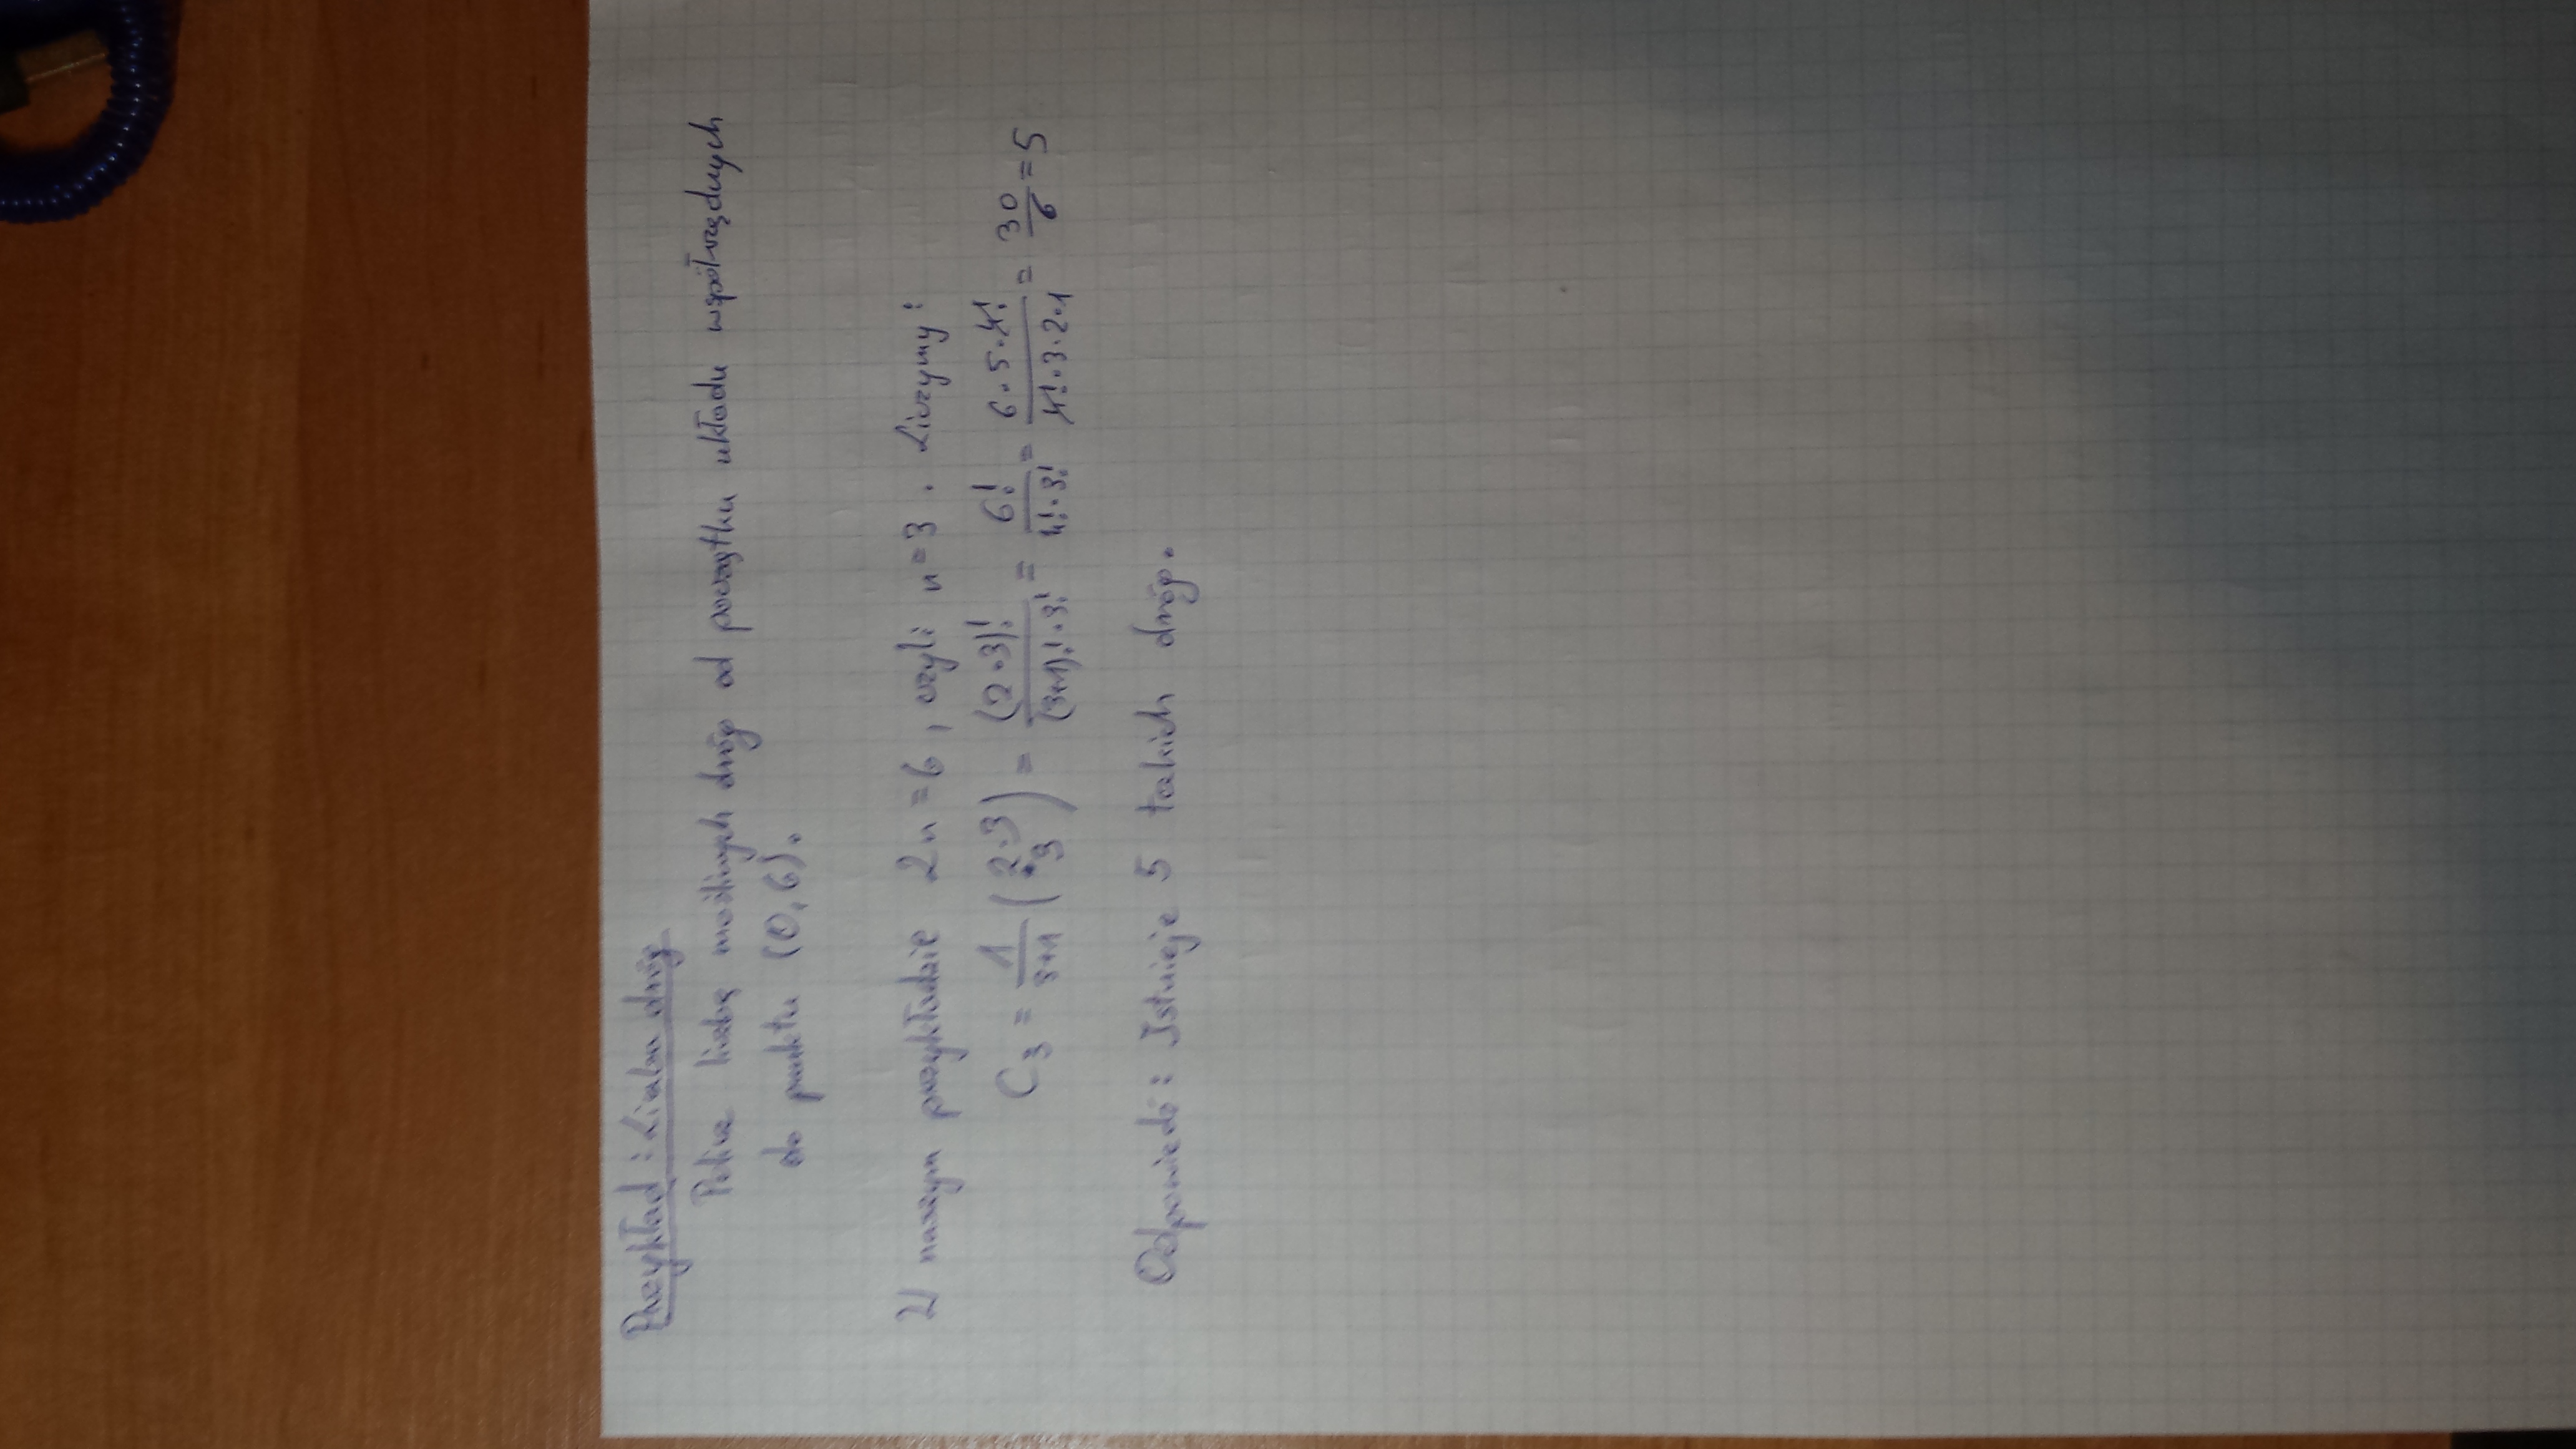 Przykład: Liczba dróg
Policz liczbę możliwych dróg od początku układu współrzędnych
do punktu (0,6).
W naszym przykładzie 2n=6, czyli n=3. Liczymy:
C₃ = \frac{1}{3+1} \binom{2·3}{3} = \frac{(2·3)!}{(3+1)!·3!} = \frac{6!}{4!·3!} = \frac{6·5·4!}{4!·3·2·1} = \frac{30}{6} = 5
Odpowiedź: Istnieje 5 takich dróg.